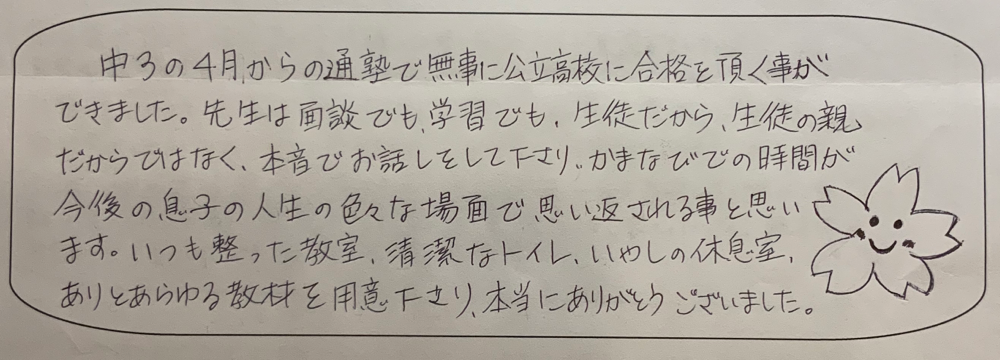 中3の4月からの通塾で無事に公立高校に合格を頂く事が
できました。先生は面談でも、学習でも、生徒だから、生徒の親
だからではなく、本音でお話しをして下さり、かまなびでの時間が
今後の息子の人生の色々な場面で思い返される事と思い
ます。いつも整った教室、清潔なトイレ、いやしの休息室、
ありとあらゆる教材を用意下さり、本当にありがとうございました。